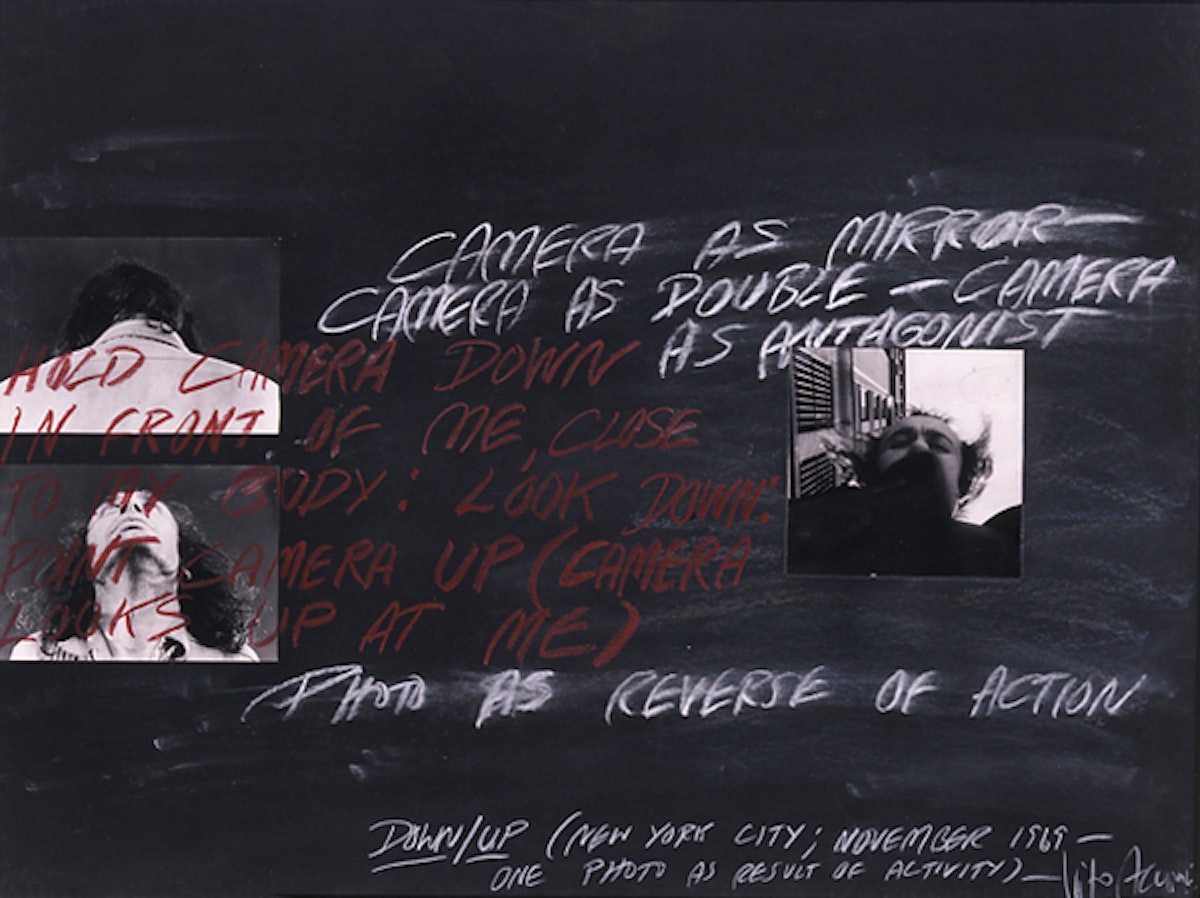 CAMERA AS MIRROR—
CAMERA AS DOUBLE — CAMERA
AS ANTAGONIST
HOLD CAMERA DOWN
IN FRONT OF ME, CLOSE
TO MY BODY: LOOK DOWN:
POINT CAMERA UP (CAMERA
LOOKS UP AT ME)
PHOTO AS REVERSE OF ACTION
DOWN/UP (NEW YORK CITY; NOVEMBER 1969 —
ONE PHOTO AS RESULT OF ACTIVITY) — Vito Acconci